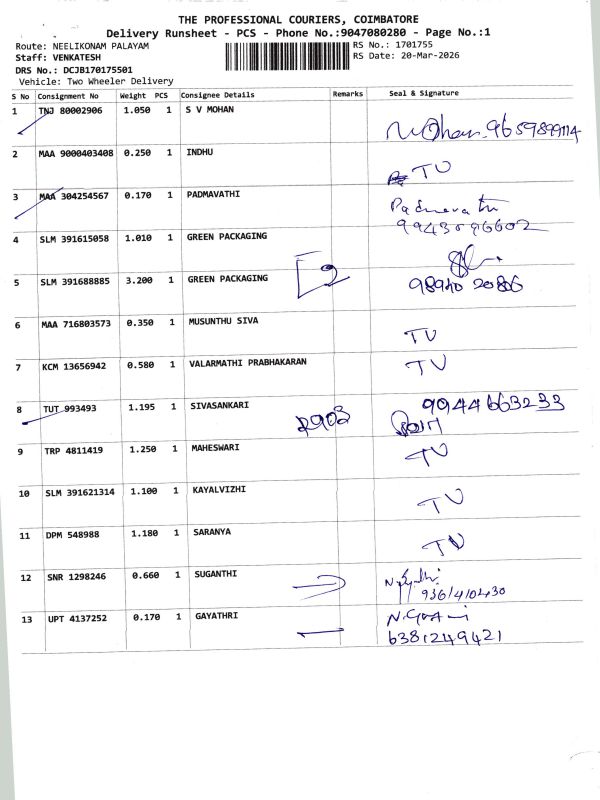 THE PROFESSIONAL COURIERS, COIMBATORE
Delivery Runsheet - PCS - Phone No.:9047080280 - Page No.:1
Route: NEELIKONAM PALAYAM
RS No.: 1701755
Staff: VENKATESH
RS Date: 20-Mar-2026
DRS No.: DCJB170175501
Vehicle: Two Wheeler Delivery
S No Consignment No Weight PCS Consignee Details Remarks Seal & Signature
1 TNJ 80002906 1.050 1 S V MOHAN
Mohan. 9659899114
2 MAA 9000403408 0.250 1 INDHU
TU
3 MAA 304254567 0.170 1 PADMAVATHI
Padmavathi
4 SLM 391615058 1.010 1 GREEN PACKAGING
5 SLM 391688885 3.200 1 GREEN PACKAGING
2
98940 20806
6 MAA 716803573 0.350 1 MUSUNTHU SIVA
TU
7 KCM 13656942 0.580 1 VALARMATHI PRABHAKARAN
TU
8 TUT 993493 1.195 1 SIVASANKARI
9944663233
9 TRP 4811419 1.250 1 MAHESWARI
TU
10 SLM 391621314 1.100 1 KAYALVIZHI
TU
11 DPM 548988 1.180 1 SARANYA
TU
12 SNR 1298246 0.660 1 SUGANTHI
9361410430
13 UPT 4137252 0.170 1 GAYATHRI
6381249421